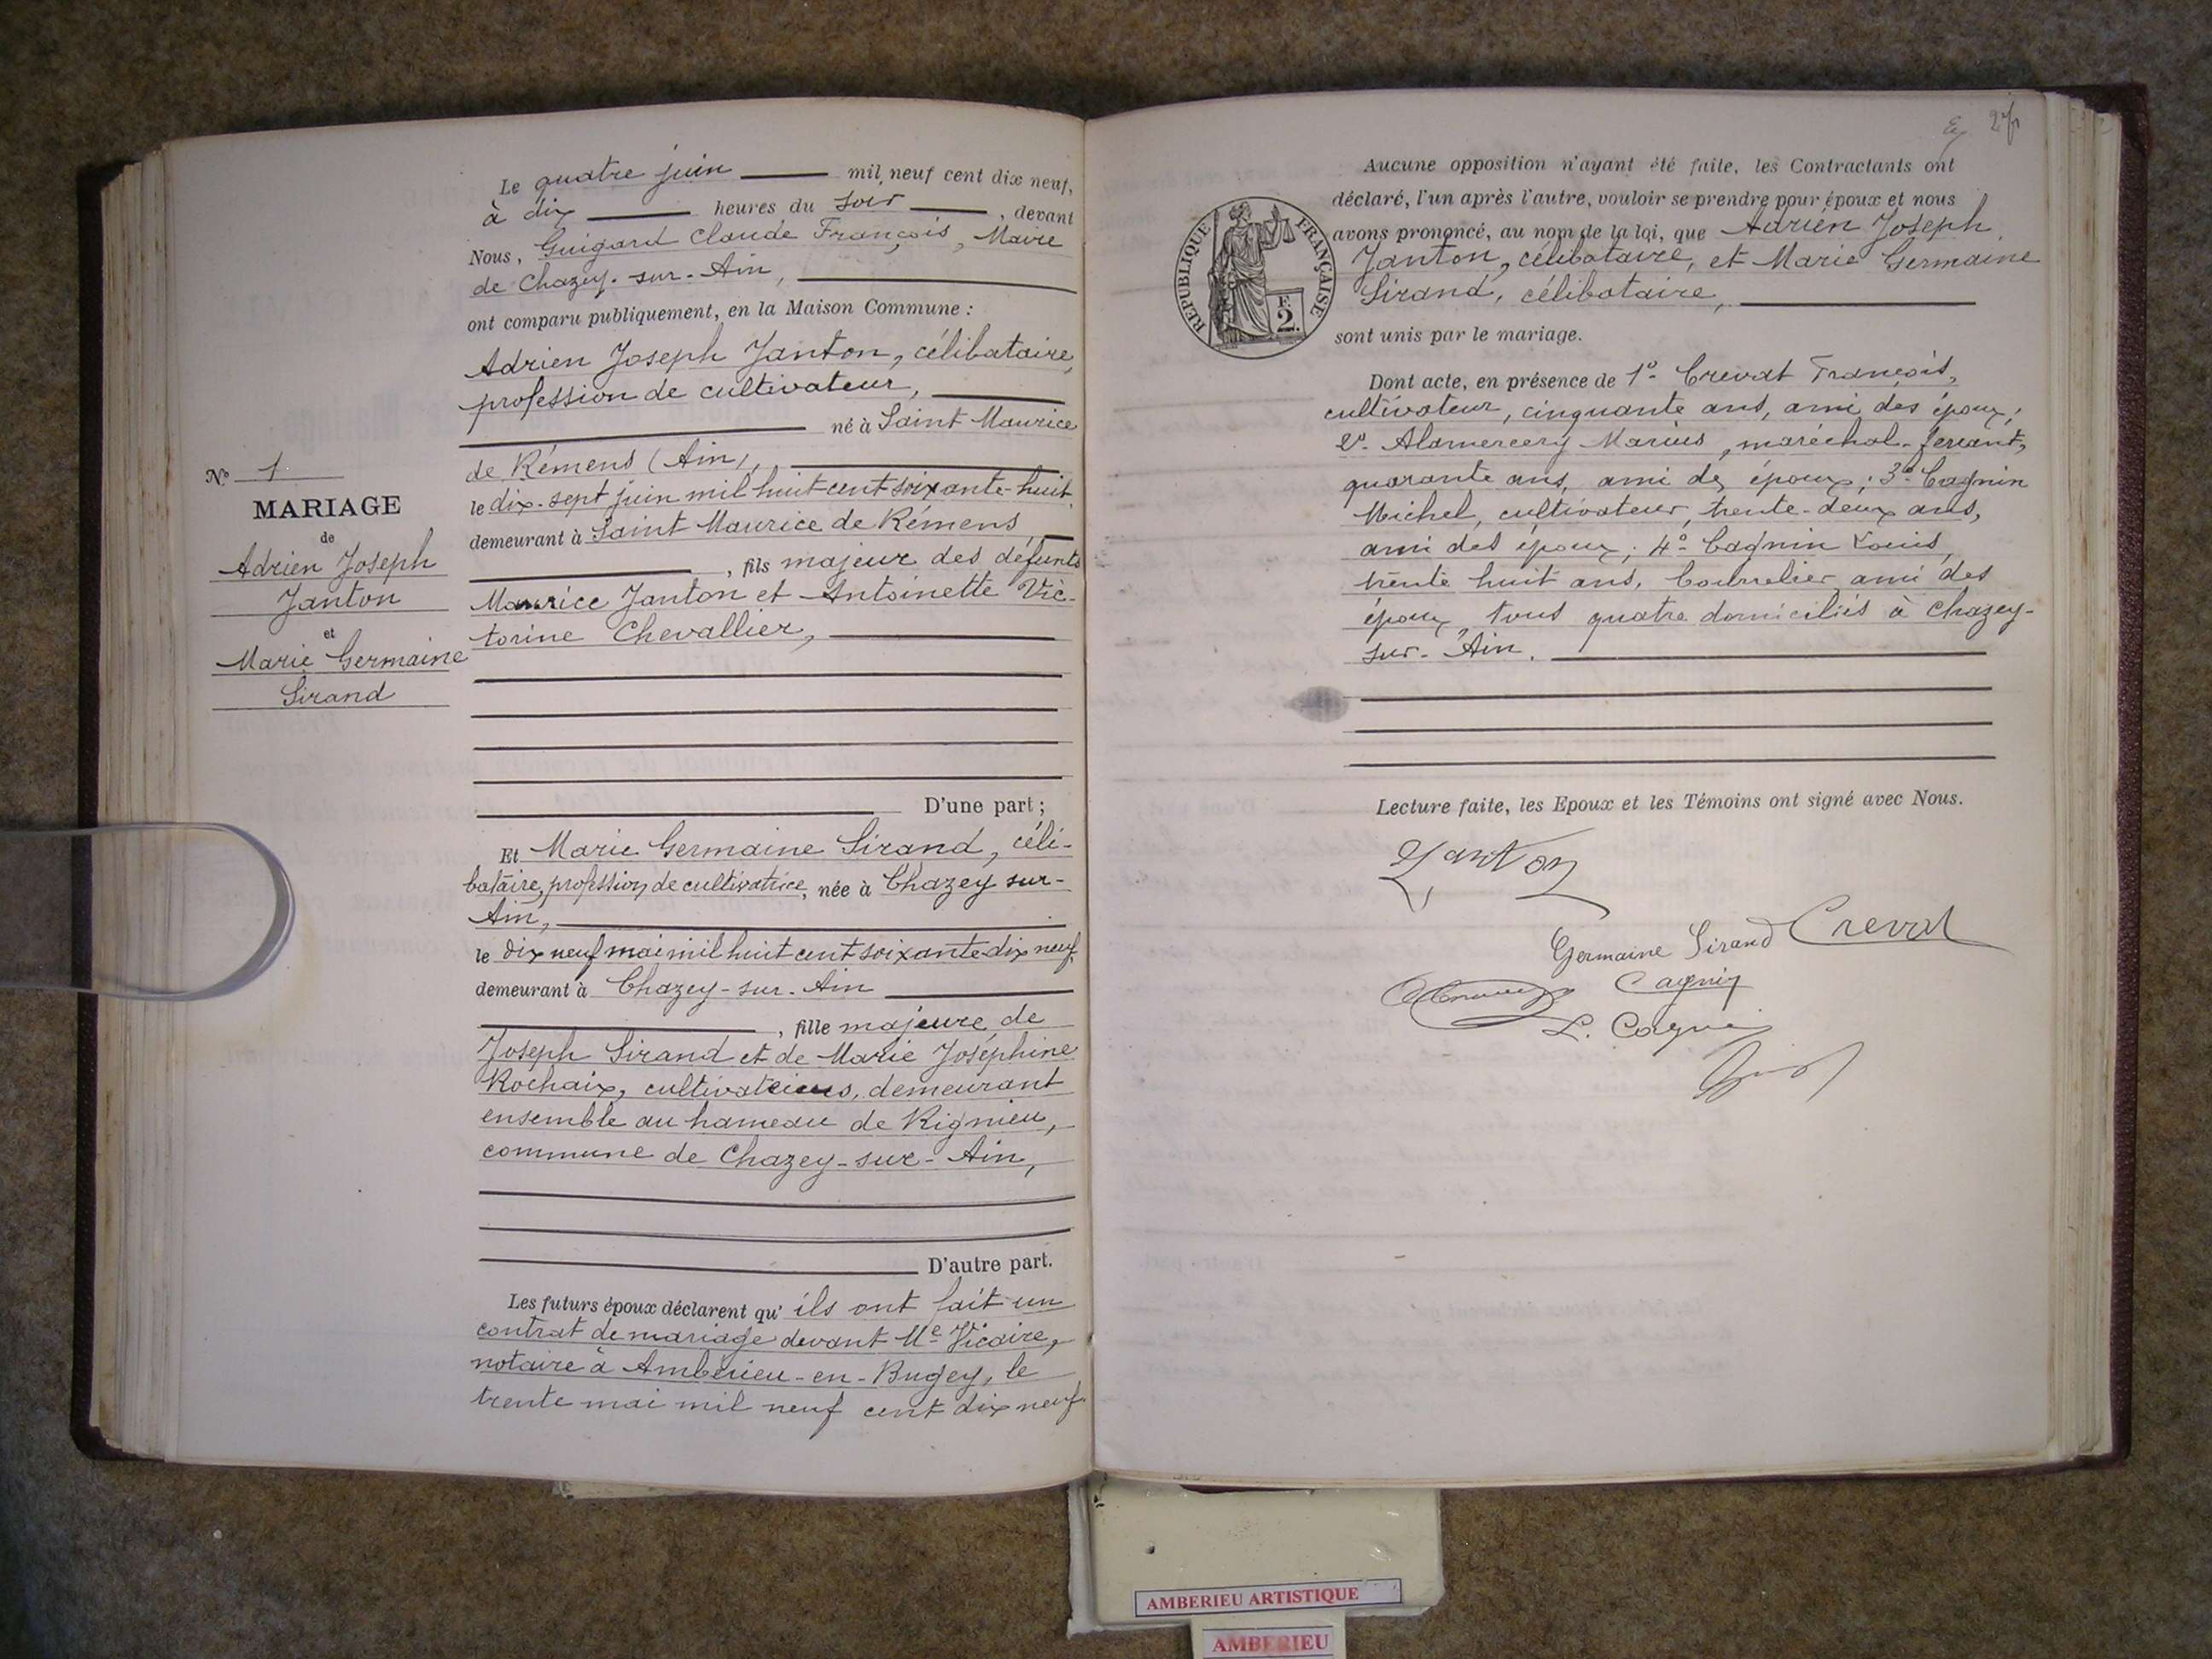 N° 1
MARIAGE
de
Adrien Joseph
Janton
et
Marie Germaine
Sirand
Le quatre juin mil neuf cent dix neuf,
à dix heures du soir, devant
Nous, Guigard Claude François, Maire
de Chazey-sur-Ain,
ont comparu publiquement, en la Maison Commune :
Adrien Joseph Janton, célibataire,
profession de cultivateur,
né à Saint Maurice
de Rémens (Ain),
le dix-sept juin mil huit cent soixante-huit,
demeurant à Saint Maurice de Rémens
, fils majeur des défunts
Maurice Janton et Antoinette Vic-
torine Chevallier,
D'une part ;
Et Marie Germaine Sirand, céli-
bataire, profession de cultivatrice, née à Chazey sur-
Ain,
le dix neuf mai mil huit cent soixante-dix neuf,
demeurant à Chazey-sur-Ain
, fille majeure de
Joseph Sirand et de Marie Joséphine
Rochaix, cultivateurs, demeurant
ensemble au hameau de Rignieu,
commune de Chazey-sur-Ain,
D'autre part.
Les futurs époux déclarent qu'ils ont fait un
contrat de mariage devant Me Vicaire,
notaire à Ambérieu-en-Bugey, le
trente mai mil neuf cent dix neuf
Aucune opposition n'ayant été faite, les Contractants ont
déclaré, l'un après l'autre, vouloir se prendre pour époux et nous
avons prononcé, au nom de la loi, que Adrien Joseph
Janton, célibataire, et Marie Germaine
Sirand, célibataire,
sont unis par le mariage.
RÉPUBLIQUE FRANÇAISE
F.
2.
Dont acte, en présence de 1° Crevat François,
cultivateur, cinquante ans, ami des époux;
2° Alamercery Marius, maréchal-ferrant,
quarante ans, ami des époux; 3° Cagnin
Michel, cultivateur, trente-deux ans,
ami des époux; 4° Cagnin Louis,
trente huit ans, bourrelier ami des
époux, tous quatre domiciliés à Chazey-
sur-Ain.
Lecture faite, les Epoux et les Témoins ont signé avec Nous.
Janton
Germaine Sirand Crevat
Cagnin
L. Cagnin
AMBERIEU ARTISTIQUE
AMBERIEU